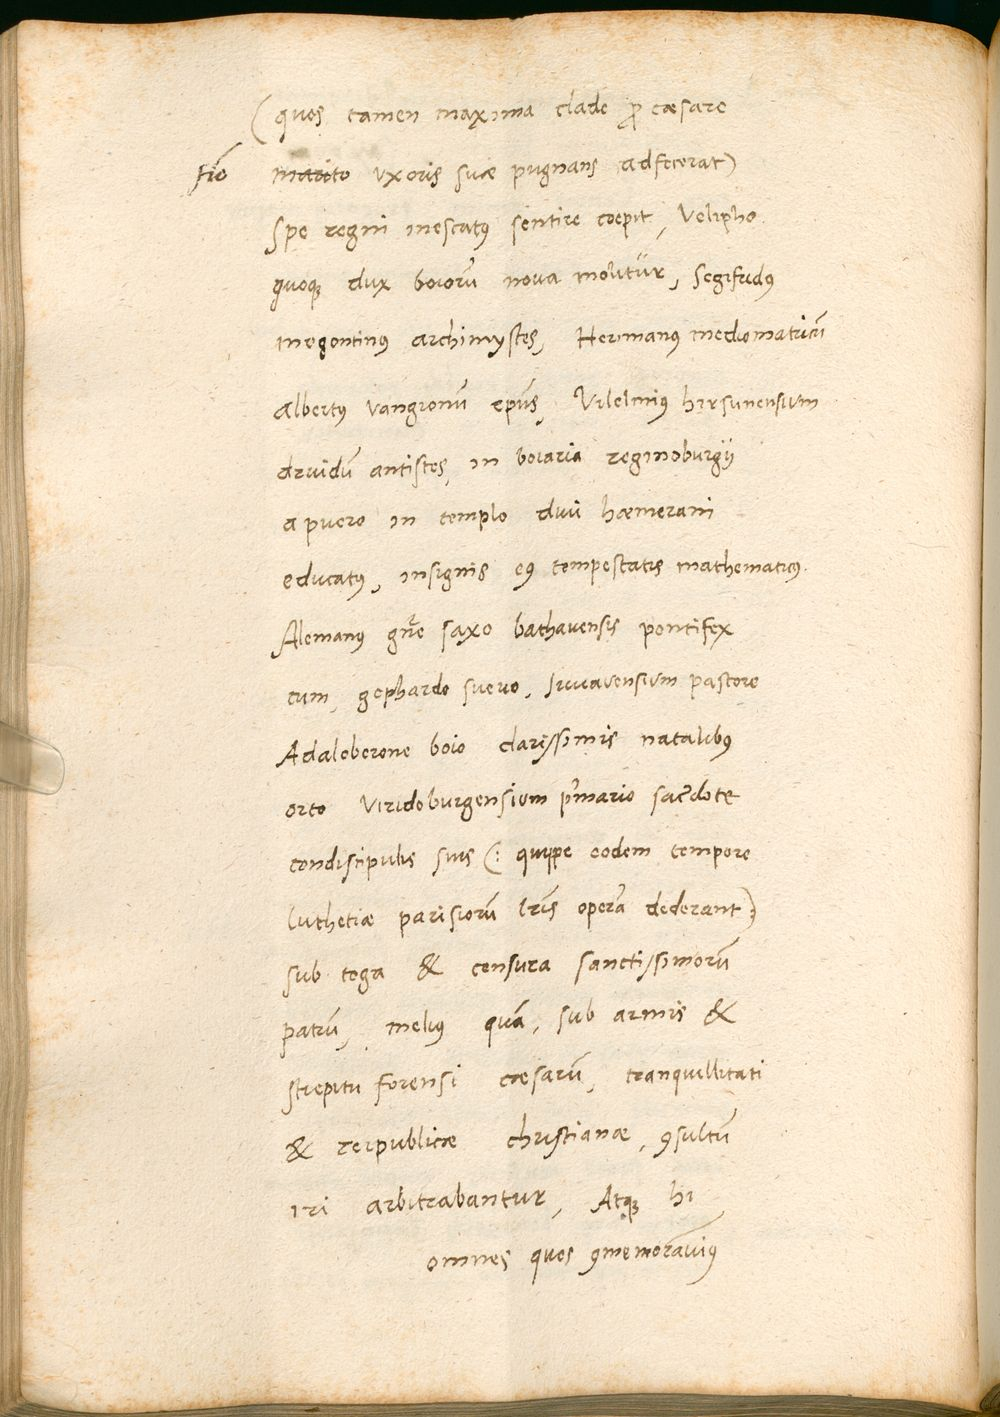 (quos tamen maxima clade ꝓ cæsare
frē marito vxoris suæ pugnans adfecerat)
Spe regni inescatꝰ sentire cœpit, Velipho
quoqꝫ dux boiorū nova molitur, Segifridꝰ
mogontinꝰ archimystes, Hermanꝰ mediomatricū
Albertꝰ vangionū epūs, Vilelmiꝰ hirsunensium
druidū antistes, in boiaria reginoburgij
a puero in templo divi hæmerani
educatꝰ, insignis eꝰ tempestatis mathematicꝰ.
Alemanꝰ gñe saxo bathavensis pontifex
cum, gephardo suevo, Iuvavensium pastore
Adaleberone boio clarissimis natalibꝰ
orto Virideburgensium p̄mario sac̄dote
condiscipulis suis (: quippe eodem tempore
luthetiæ parisiorū lr̄is operā dederant:)
sub toga & censura sanctissimorū
patrū, meliꝰ quā, sub armis &
strepitu forensi cæsarū, tranquillitati
& reipublicæ christianæ, ꝯsultū
iri arbitrabantur, Atqꝫ hi
omnes quos ꝯmemoravimꝰ